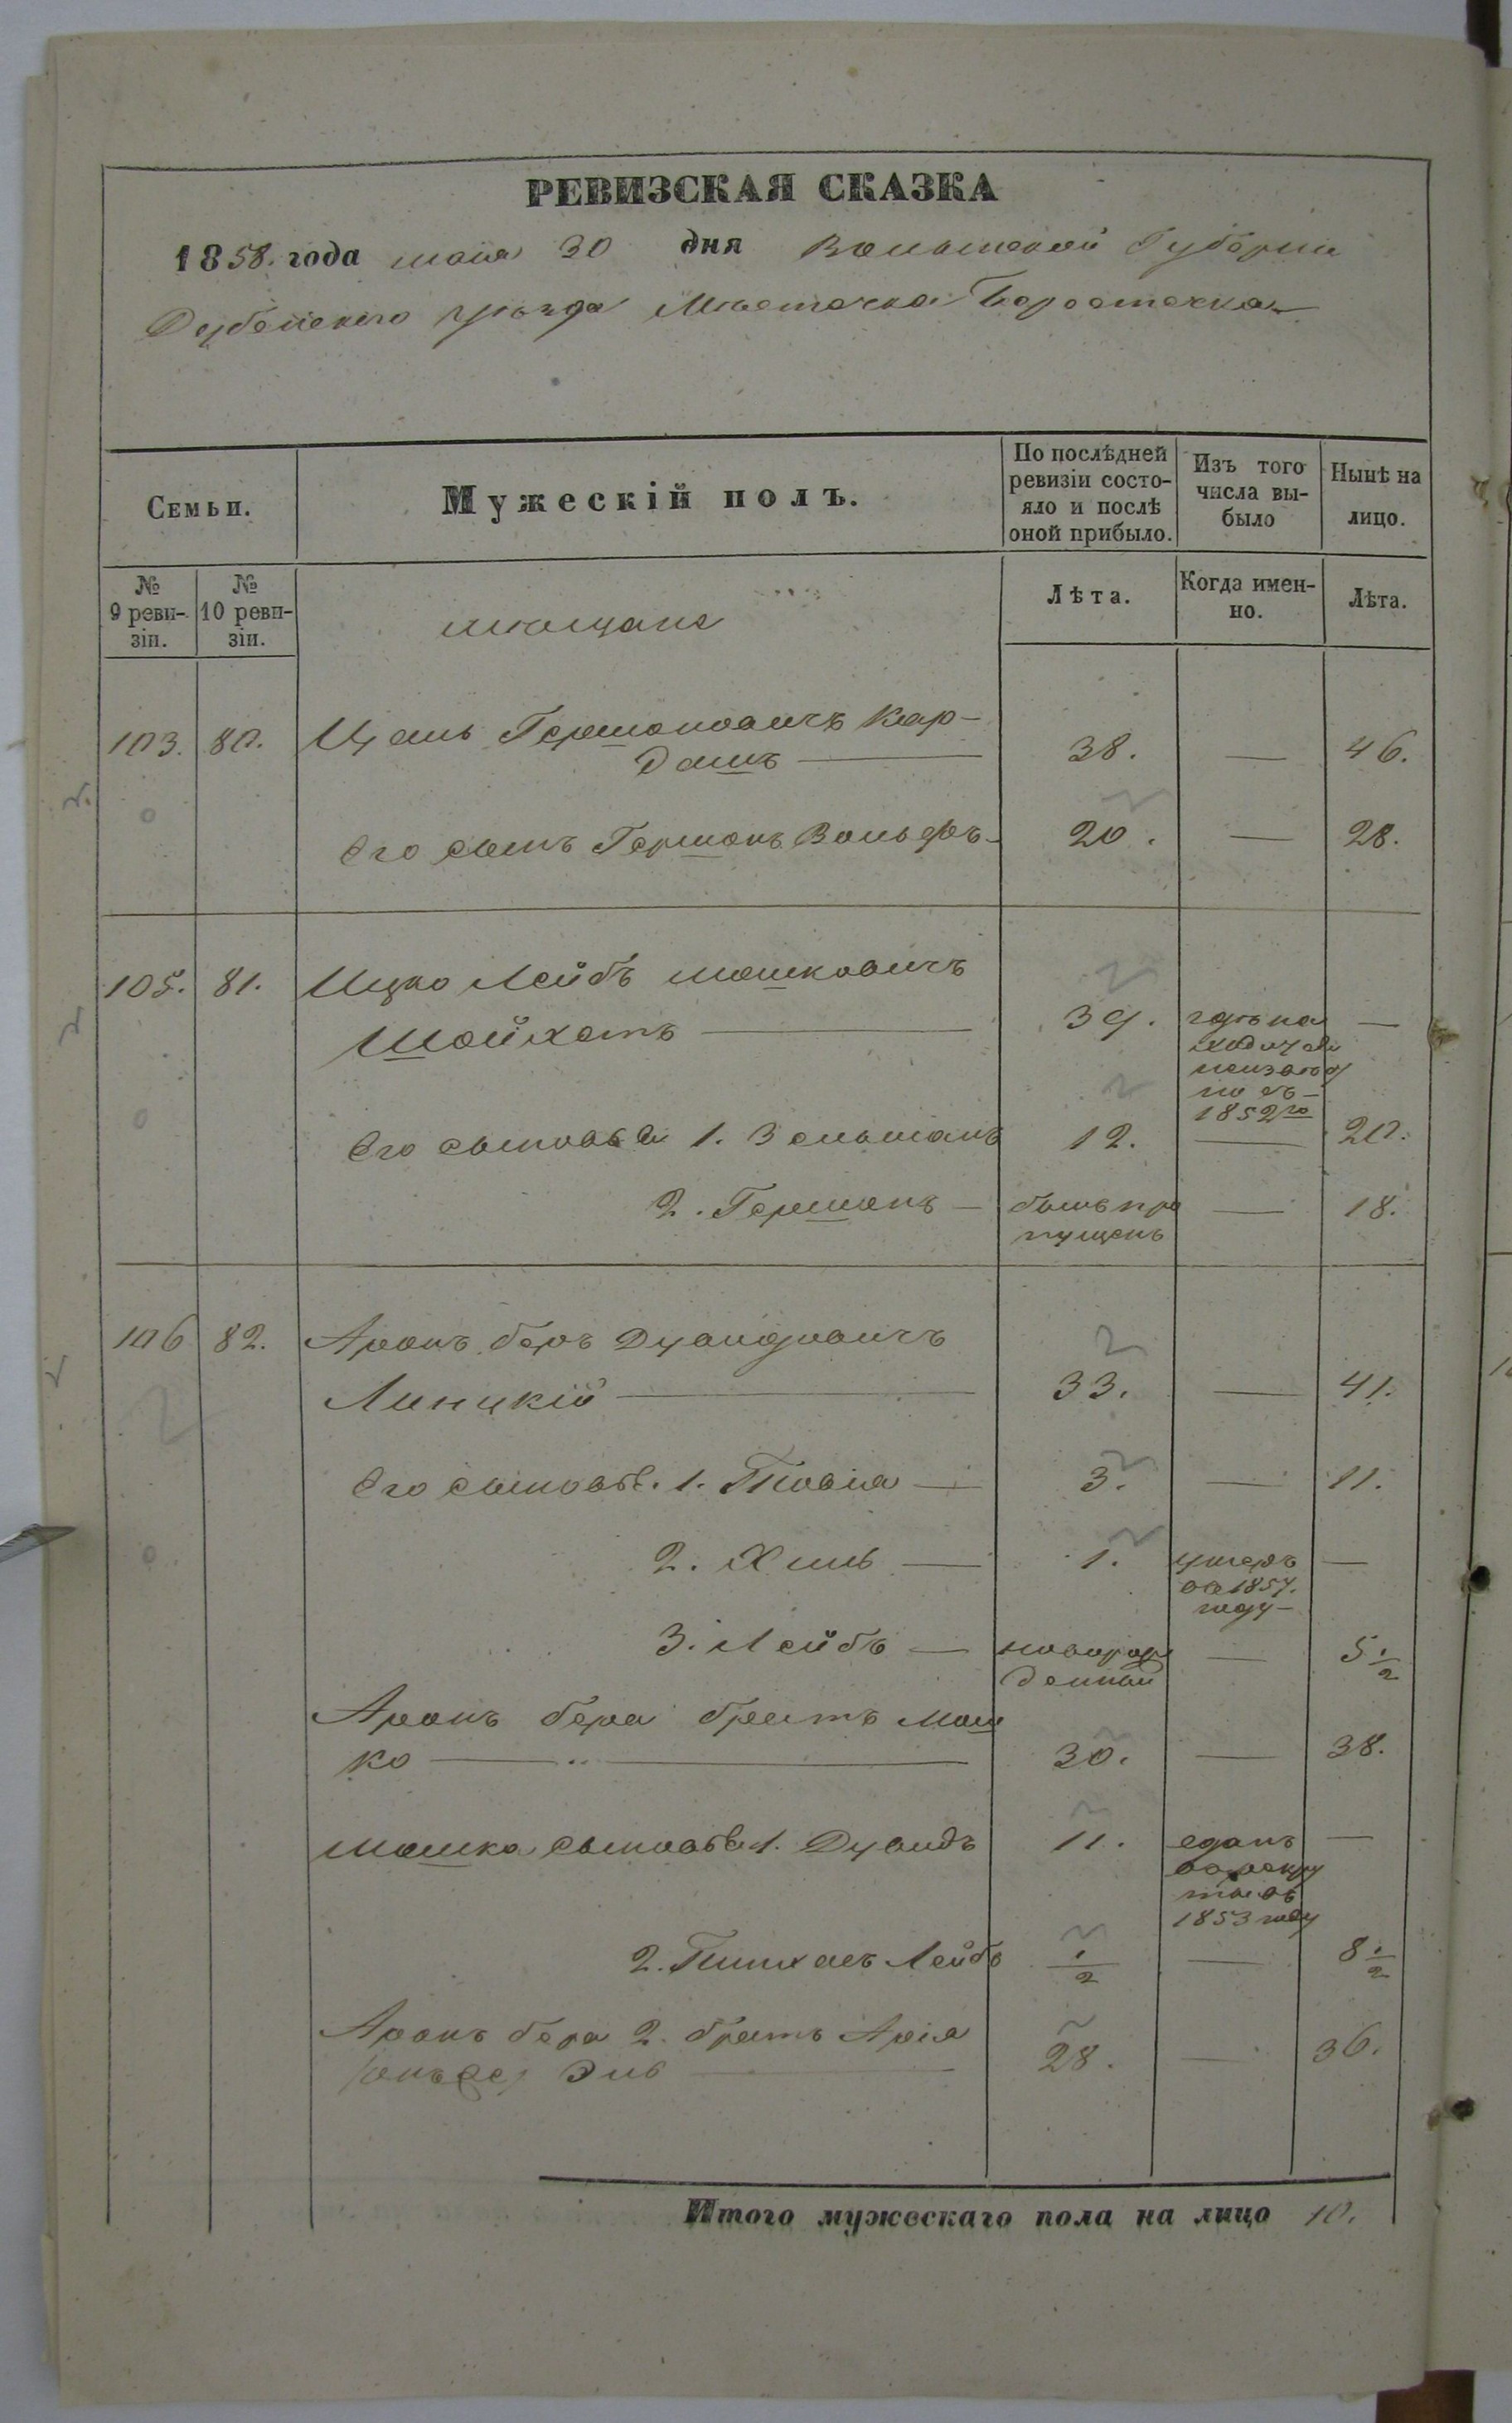 РЕВИЗСКАЯ СКАЗКА
1858. года мая 30 дня Волынской Губерніи
Дубенскаго уѣзда Мѣстечка Берестечка
Семьи.
Мужескій полъ.
По послѣдней ревизіи состояло и послѣ оной прибыло.
Изъ того числа выбыло
Нынѣ на лицо.
№ 9 ревизіи.
№ 10 ревизіи.
мѣщане
Лѣта.
Когда именно.
Лѣта.
103. 80. Гершоновичъ Кар-
дашъ — 38. — 46.
Его сынъ Гершонъ Вольфъ — 20. — 28.
105. 81. Ицко Лейбъ Мошковичъ
Шойхетъ — 39. гдѣ на —
ходится
неизвѣст
но съ —
1852го
Его сыновья 1. Зельманъ 12. — 20.
2. Гершонъ — былъ про — 18.
пущенъ
106 82. Аронъ Беръ Дувидовичъ
Линицкій — 33. — 41.
Его сыновья. 1. Товія — 3. — 11.
2. Хиль — 1. умеръ —
въ 1857.
году —
3. Лейбъ — новорож — 5 1/2
денный
Аронъ Бера братъ Мош
ко — 30. — 38.
Мошка сыновья 1. Дувидъ 11. сданъ —
въ рекру
ты въ
1853 году
2. Пинхасъ Лейбъ 1/2 — 8 1/2
Аронъ Бера 2. братъ Арія
Эль — 28. — 36.
Итого мужескаго пола на лицо 10.